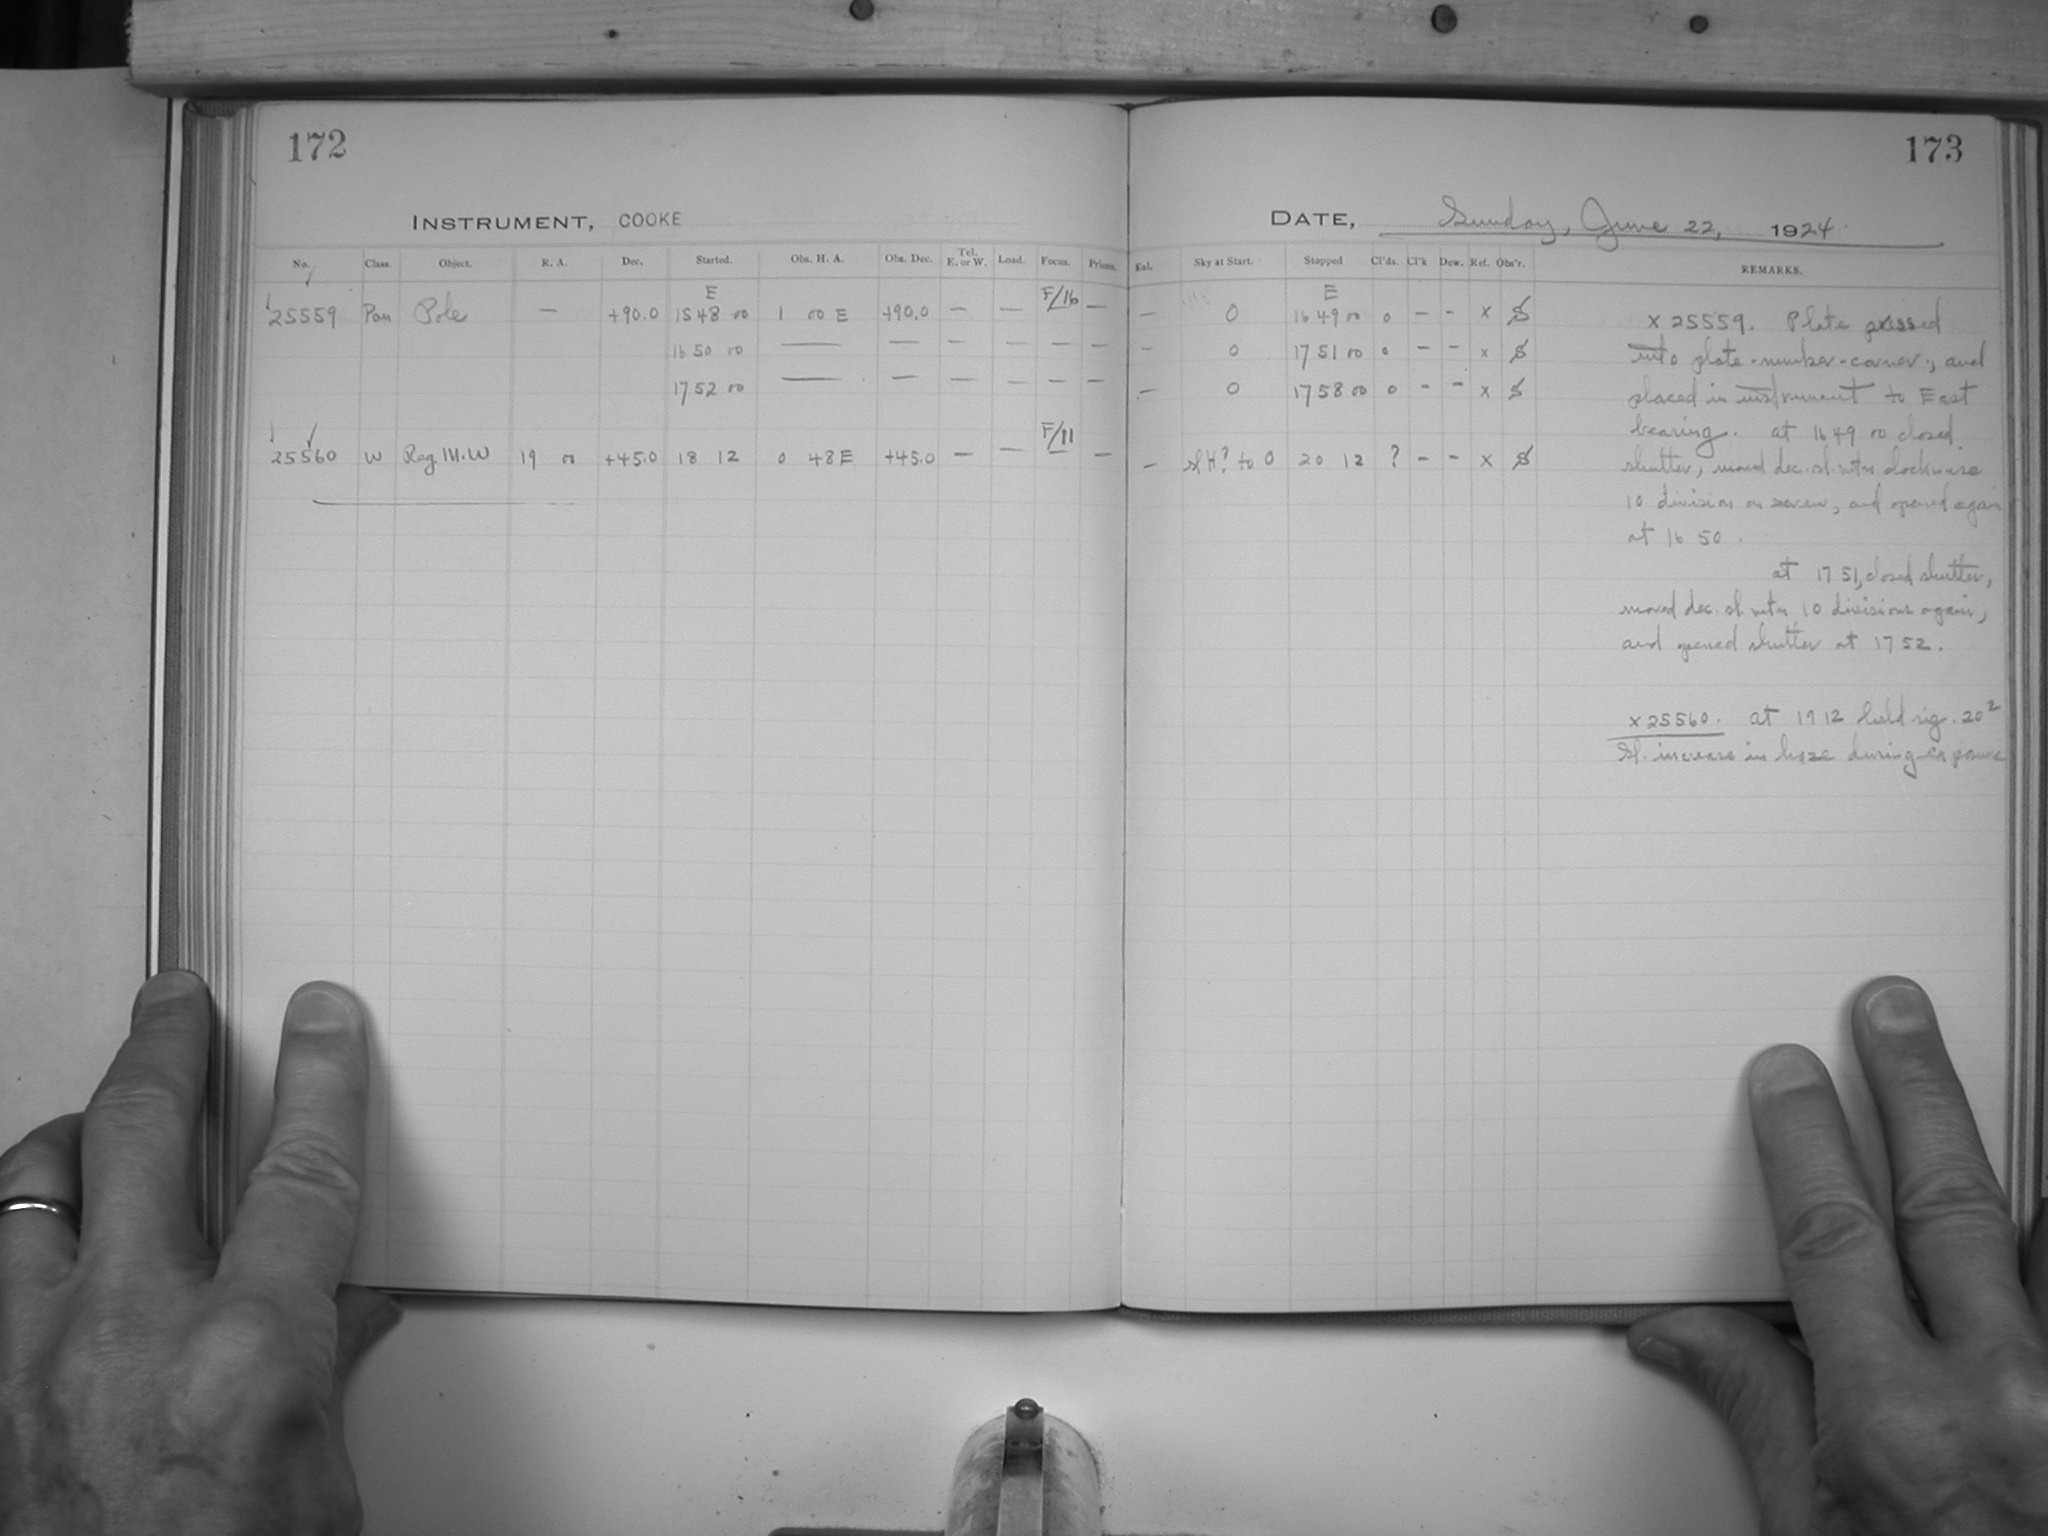 172
173
INSTRUMENT, COOKE
DATE, Sunday, June 22, 1924
No. Class. Object. R. A. Dec. Started. Obs. H. A. Obs. Dec. Tel. E. or W. Load. Focus. Prisms.
Exl. Sky at Start. Stopped Cl'ds. Cl'k Dew. Ref. Obs'r. REMARKS.
E F/16 E
25559 Pan Pole — +90.0 1548 00 1 00 E +90.0 — — — — 0 1649 00 0 – – x S
1650 00 — — — — — — — 0 1751 00 0 – – x S
1752 00 — — — — — — — 0 1758 00 0 – – x S
F/11
25560 W Reg. 111. W 19 00 +45.0 18 12 0 48 E +45.0 — — — — sl H? to 0 20 12 ? – – x S
x 25559. Plate pressed
into plate-number-corner, and
placed in instrument to East
bearing. at 1649 00 closed
shutter, moved dec. sl. mtn clockwise
10 division on screw, and opened again
at 16 50.
at 17 51, closed shutter,
moved dec. sl. mtn 10 divisions again,
and opened shutter at 17 52.
x 25560. at 19 12 held rig. 20²
Sl. increase in haze during exposure